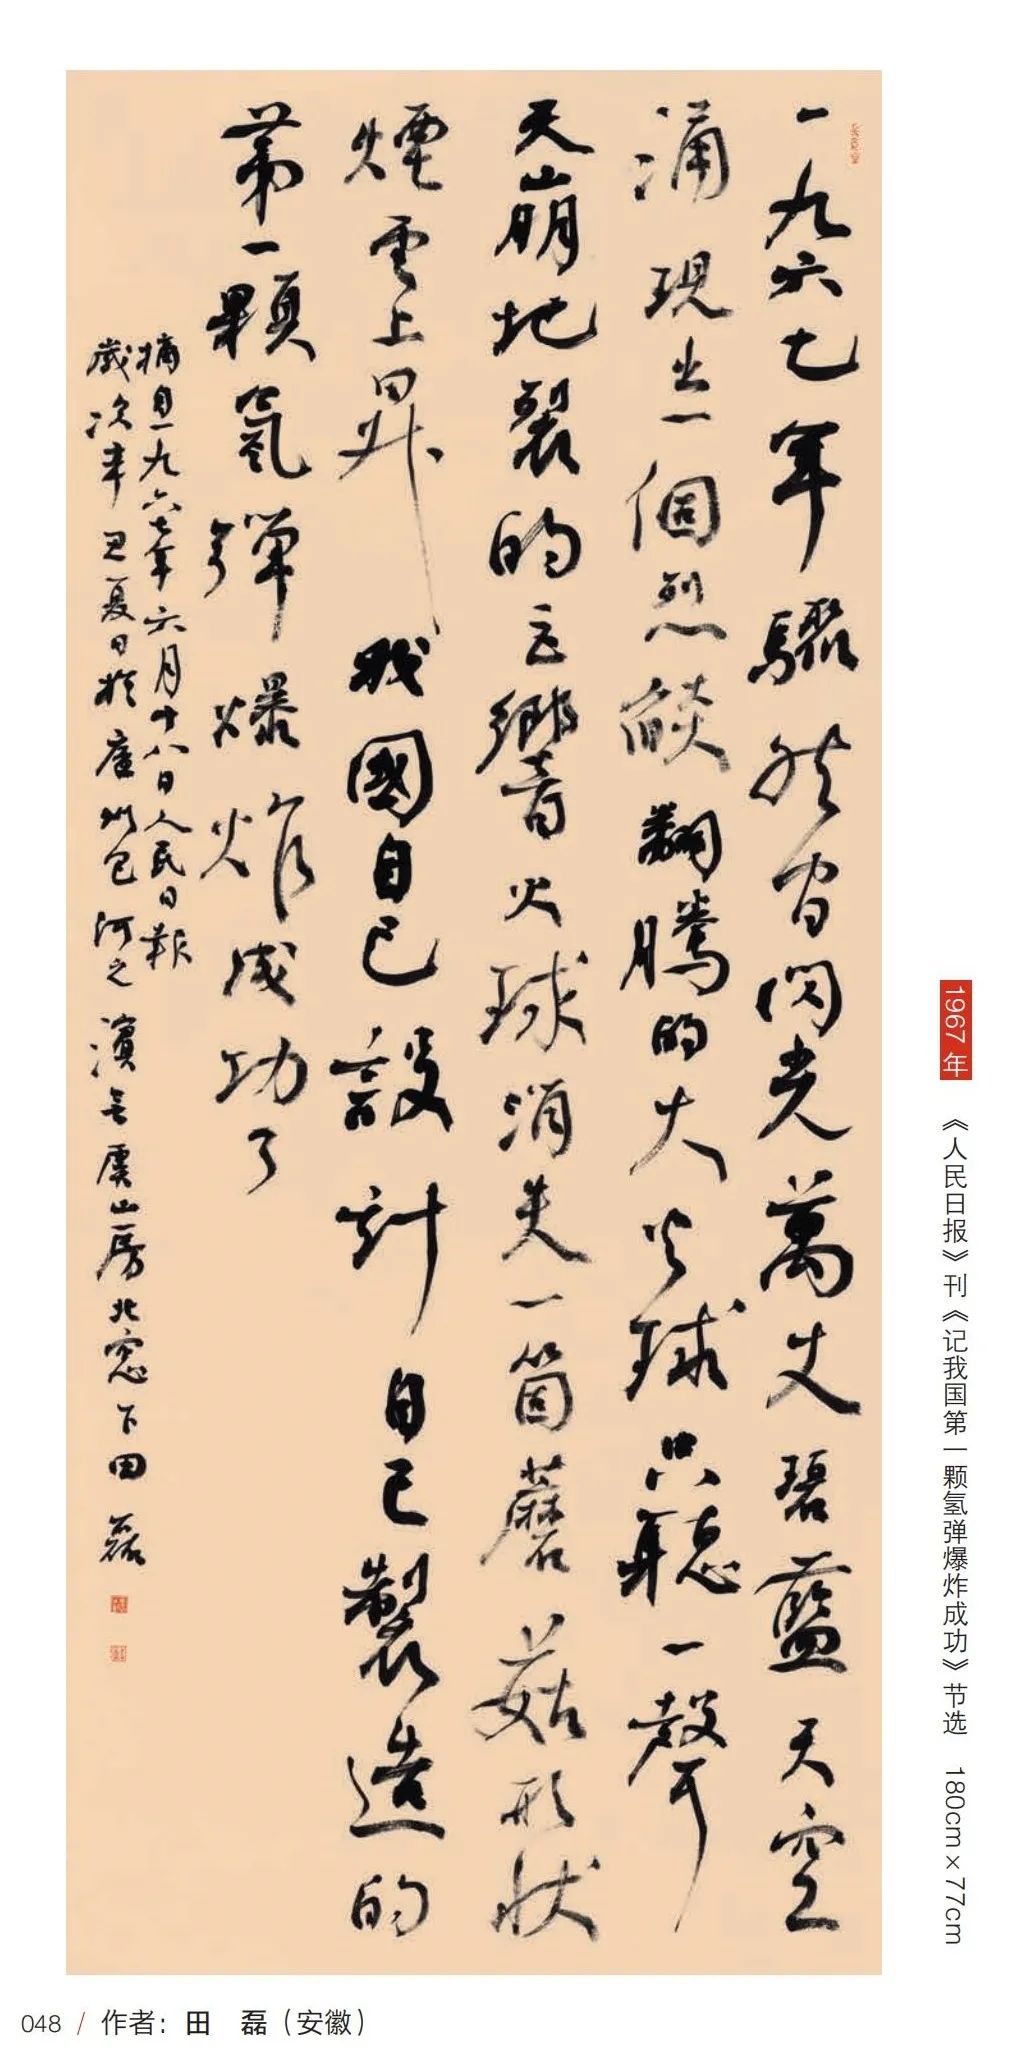 一九六七年驟然間閃光萬丈碧藍天空
涌現出一個烈燄翻騰的大火球只聽一聲
天崩地裂的巨響火球消失一箇蘑菇形狀
煙雲上昇我國自己設計自己製造的
第一顆氫彈爆炸成功了
摘自一九六七年六月十八日人民日報
歲次辛丑夏日於廬州包河之濱無虞山房北窓下田磊
1967年 《人民日报》刊《记我国第一颗氢弹爆炸成功》节选 180cm×77cm
048 / 作者：田 磊（安徽）